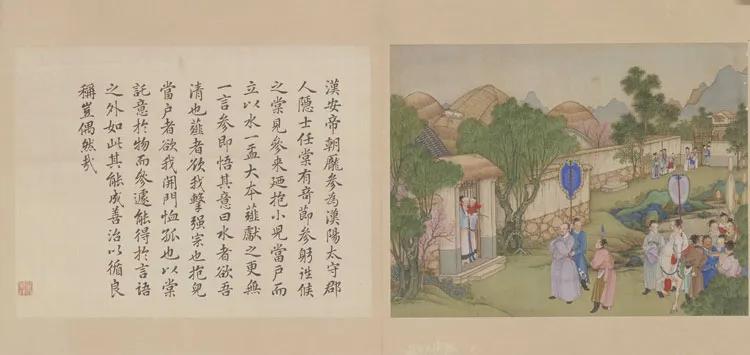 漢安帝朝龐參為漢陽太守郡
人隱士任棠有奇節參躬往候
之棠見參來迺抱小兒當户而
立以水一盂大本薤獻之更無
一言參即悟其意曰水者欲吾
清也薤者欲我擊强宗也抱兒
當户者欲我開門恤孤也以棠
託意於物而參遽能得於言語
之外如此其能成善治以循良
稱豈偶然哉